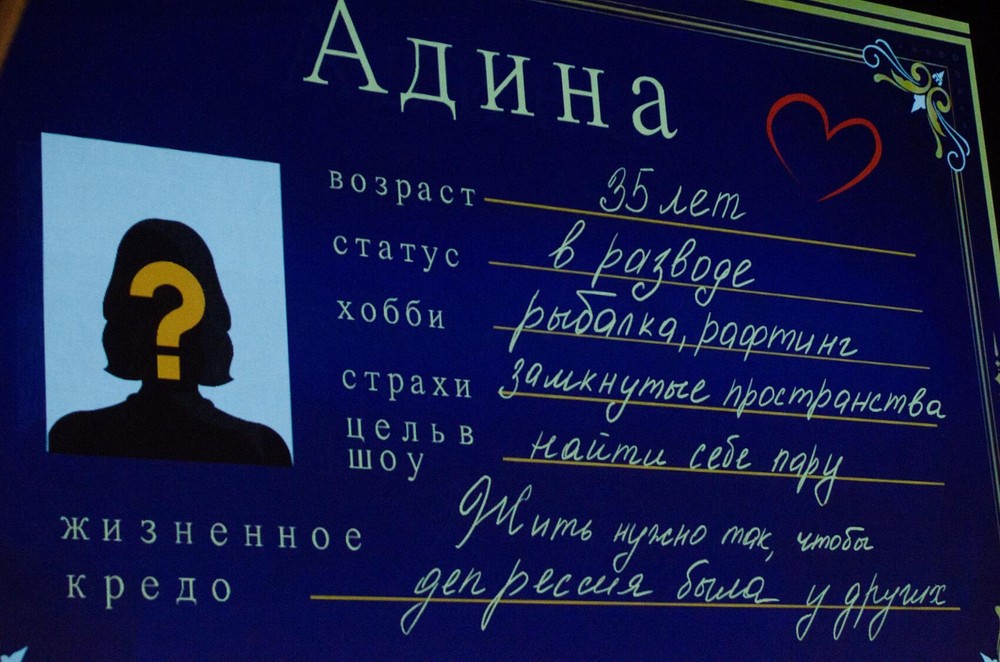 Адина
?
возраст 35 лет
статус в разводе
хобби рыбалка, рафтинг
страхи замкнутые пространства
цель в
шоу найти себе пару
жизненное Жить нужно так, чтобы
кредо депрессия была у других